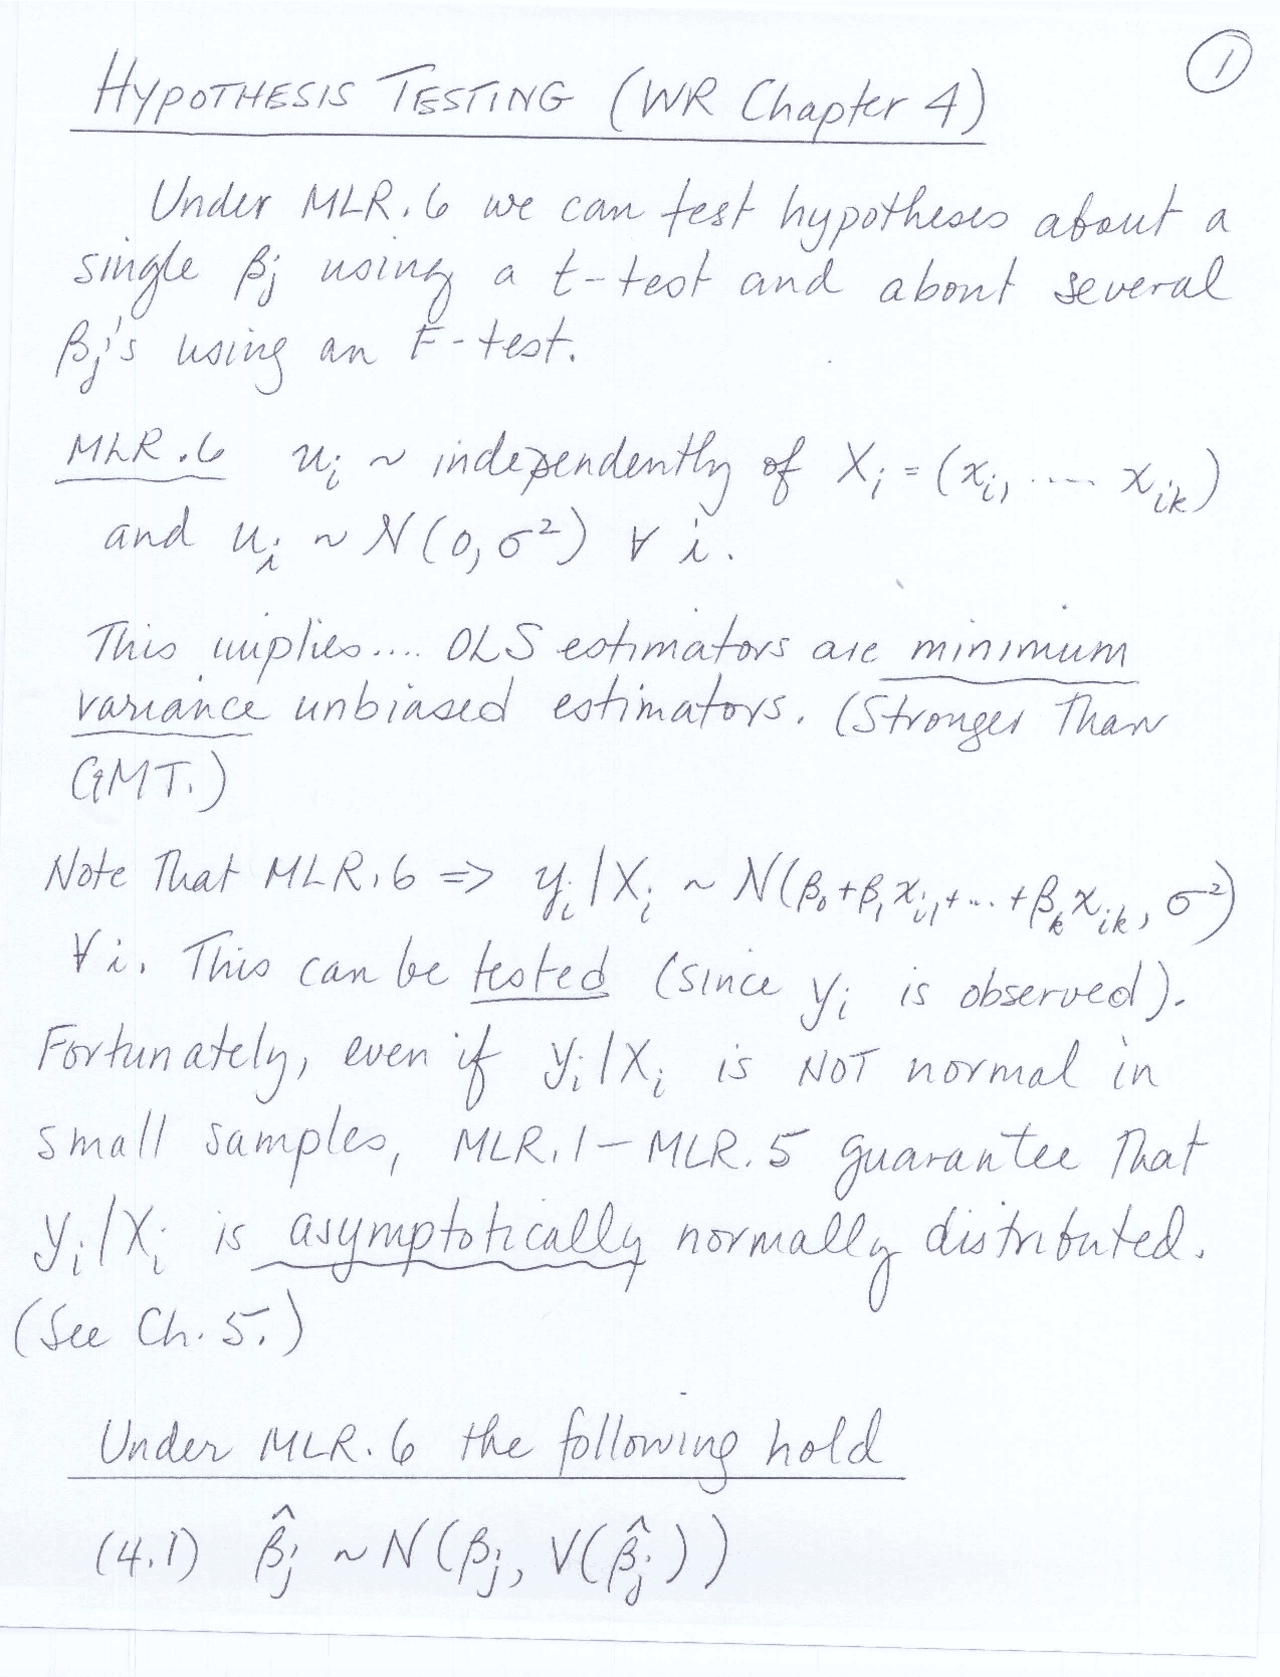 ①
HYPOTHESIS TESTING (WR Chapter 4)
Under MLR.6 we can test hypotheses about a
single βj using a t-test and about several
βj's using an F-test.
MLR.6 ui ~ independently of Xi = (xi1 .... xik)
and ui ~ N(0, σ²) ∀ i.
This implies.... OLS estimators are minimum
variance unbiased estimators. (Stronger Than
GMT.)
Note That MLR.6 => yi|Xi ~ N(β0+β1xi1+...+βkxik, σ²)
∀i. This can be tested (since yi is observed).
Fortunately, even if yi|Xi is NOT normal in
small samples, MLR.1 – MLR.5 guarantee That
yi|Xi is asymptotically normally distributed.
(See Ch. 5.)
Under MLR.6 the following hold
(4.1) β̂j ~ N(βj, V(β̂j))